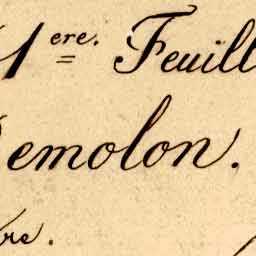 1ere. Feuill
Demolon.
re.